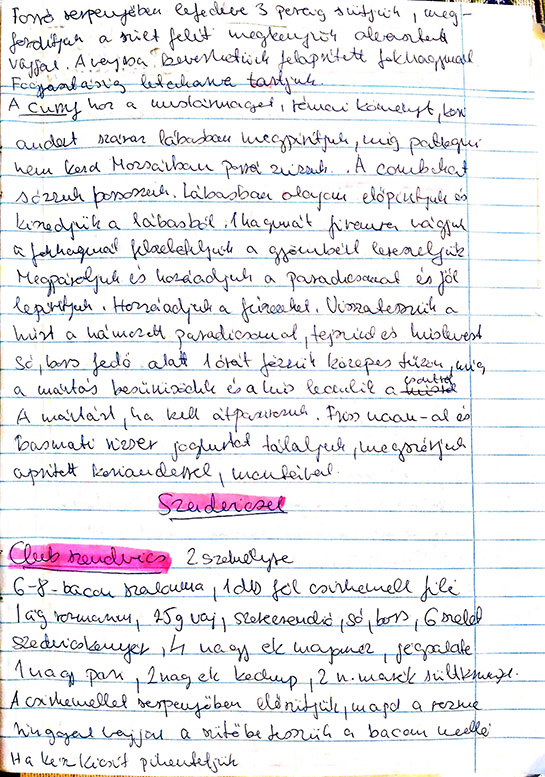 Forró serpenyőben lefedve 3 percig sütjük, meg-
fordítjuk a sült felét megkenjük olvasztott
vajjal. A vajba beverhetünk felaprított fokhagymát
Fogyasztásig letakarva tartjuk.
A curry hoz a mustármagot, római köményt, kori
andert száraz lábasban megpirítjuk, míg pattogni
nem kezd Mozsárban porrá zúzzuk. A combokat
sózzuk borsozzuk. Lábasban olajon előpirítjuk és
kiszedjük a lábasból. 1 hagymát finomra vágjuk
a fokhagymát felszeleteljük a gyömbért lereszeljük
Megpároljuk és hozzáadjuk a paradicsomot és jól
lepirítjuk. Hozzáadjuk a fűszereket. Visszatesszük a
húst a hámozott paradicsomot, tejszínt és húslevest
Só, bors fedő alatt 1 órát főzzük közepes tűzön, míg
a mártás besűrűsödik és a hús leomlik a csontról
A mártást, ha kell átpasszírozzuk. Friss naan-al és
basmati rizzsel joghurttal tálaljuk, megszórjuk
aprított korianderrel, mentával.
Szendvicsek
Club szendvics 2 személyre
6-8-bacon szalonna, 1 db fél csirkemell filé
1 ág rozmaring, 25g vaj, szerecsendió, só, bors, 6 szelet
szendvicskenyér, 4 nagy ek majonéz, jégsaláta
1 nagy para, 2 nag ek kechup, 2 n. marék sültkrumpli.
A csirkemellet serpenyőben elősütjük, majd a rozma
ringgal vajjal a sütőbe tesszük a bacon mellé
Ha kész kicsit pihentetjük